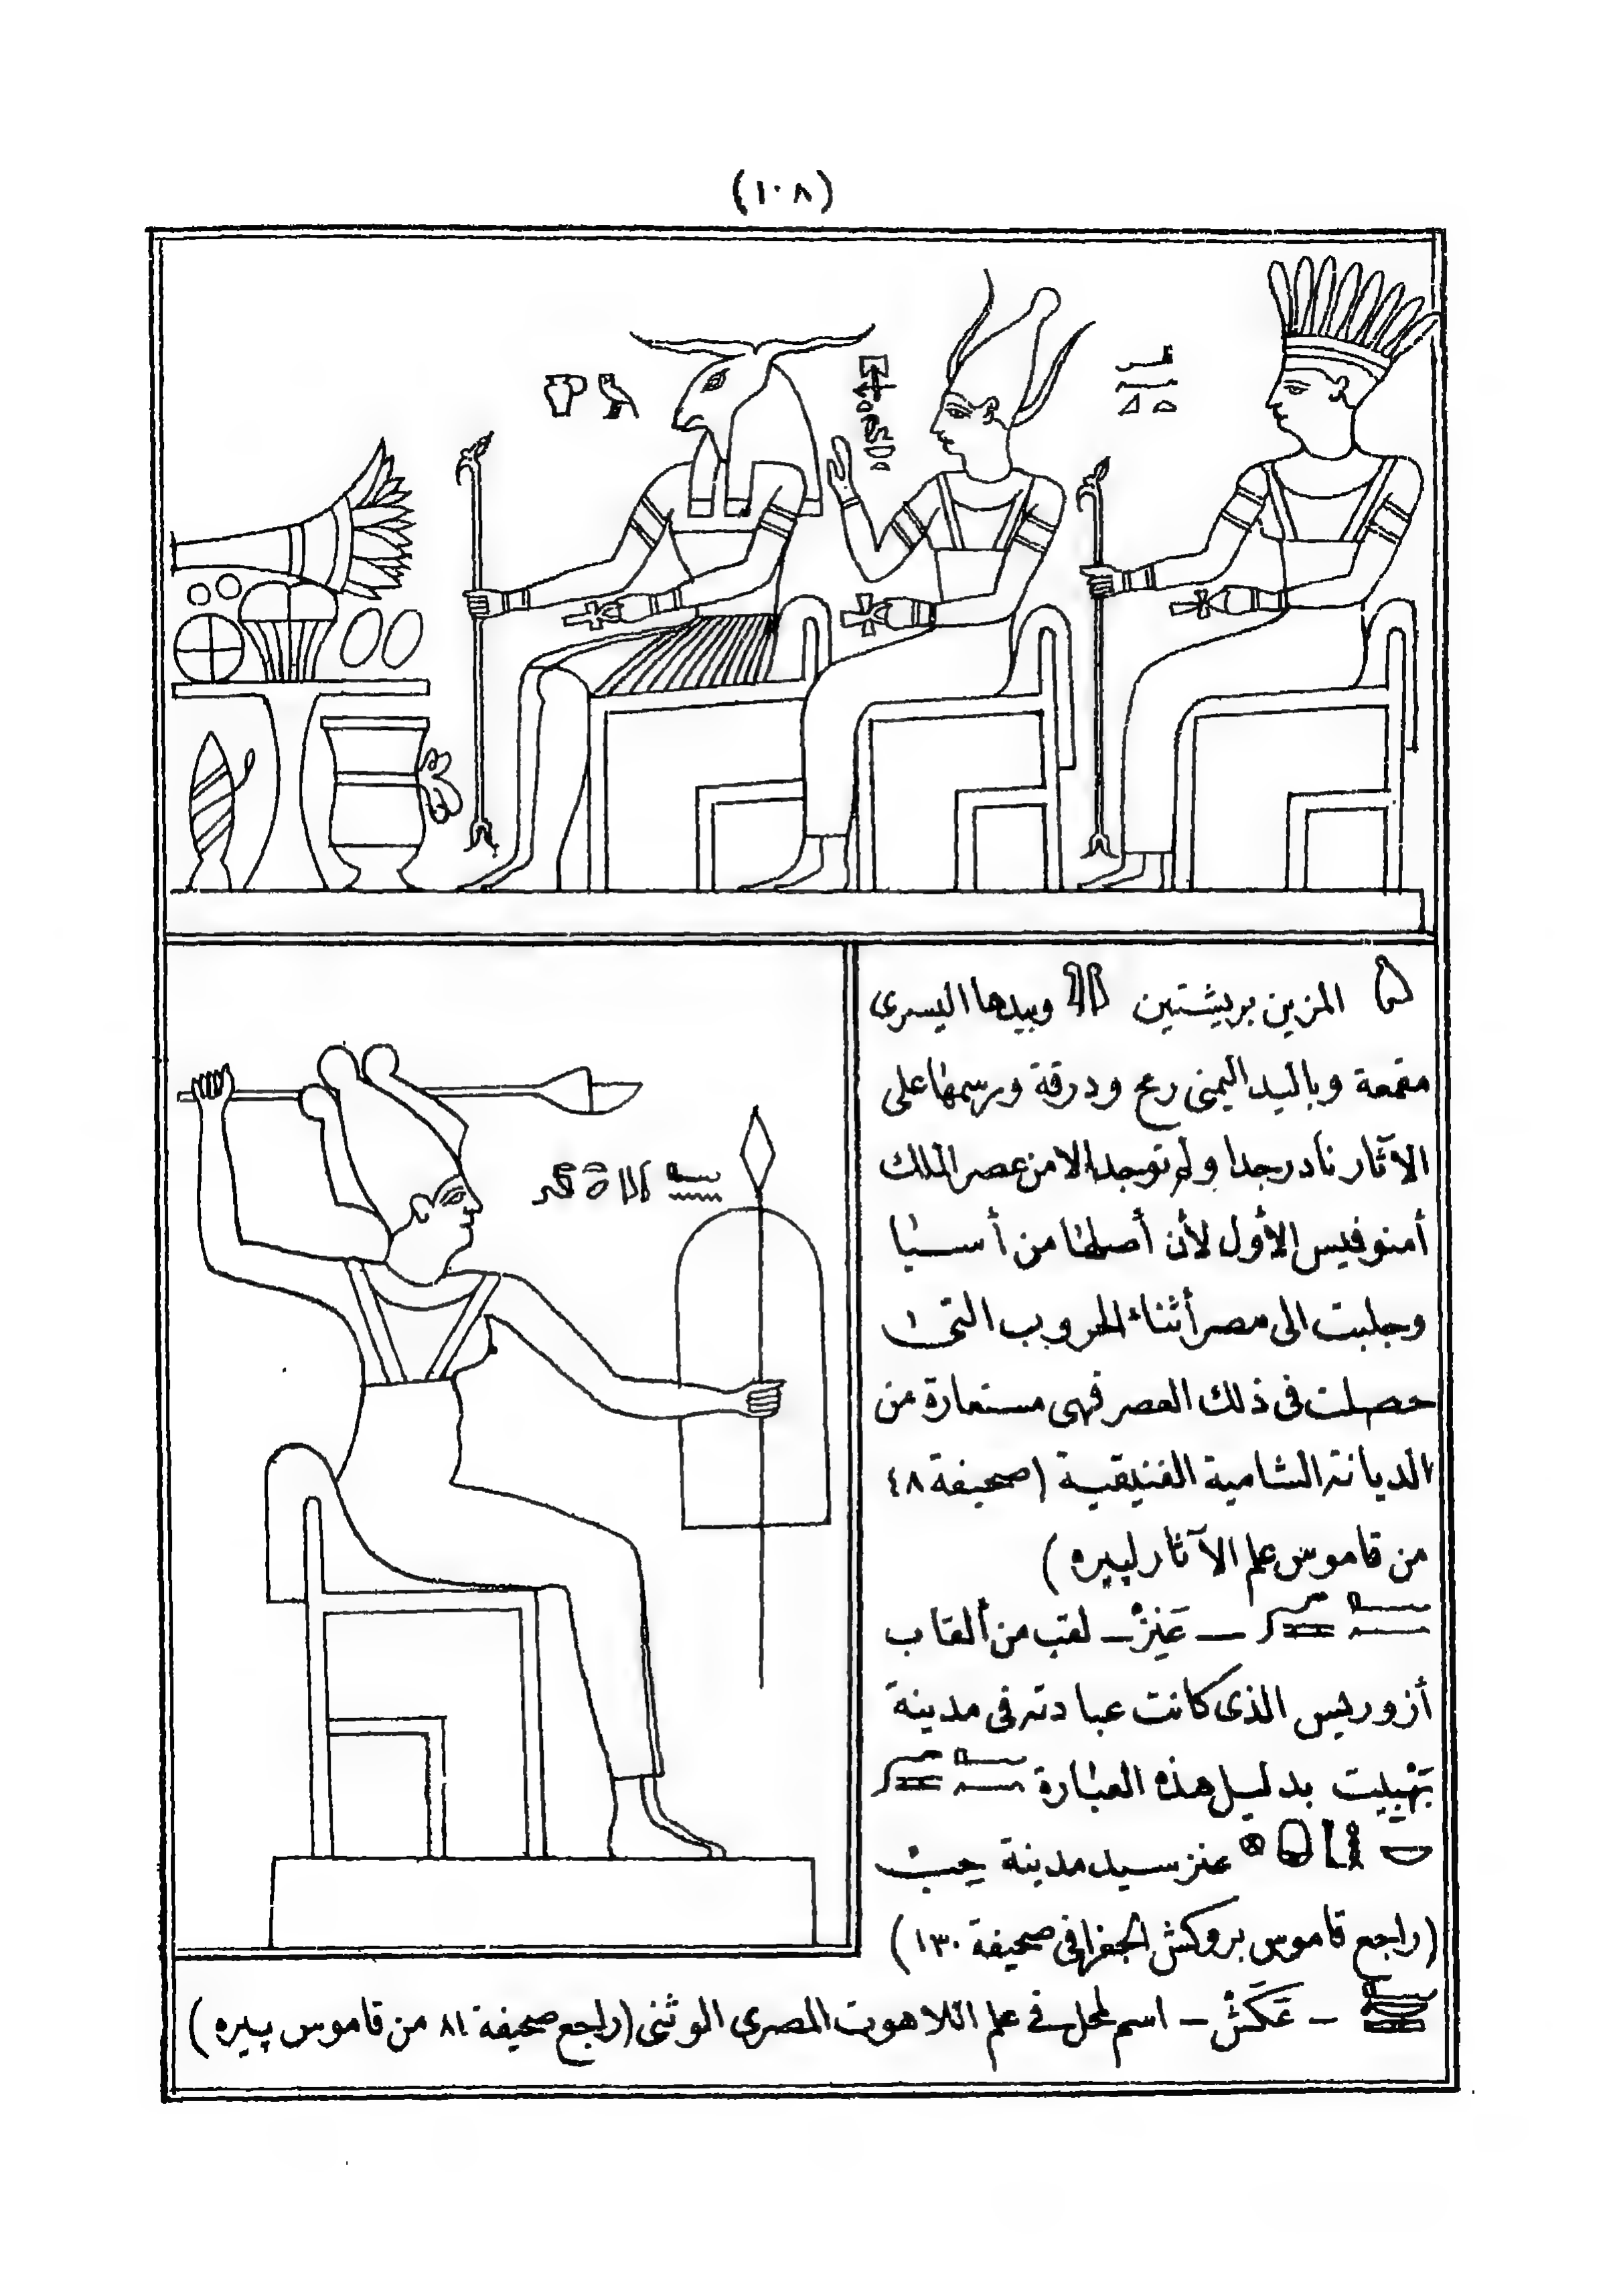 (١٠٨)
المزين بريشتين وبيدها اليسرى
مقمعة وباليد اليمنى رمح ودرقة ورسمها على
الآثار نادر جدا ولم توجد الا من عصر الملك
أمنوفيس الأول لأن أصلها من أسيا
وجلبت الى مصر أثناء الحروب التى
حصلت فى ذلك العصر فهى مستعارة من
الديانة الشامية الفنيقية (صحيفة ٤٨
من قاموس علم الآثار لپيره)
— عَنِزْ — لقب من ألقاب
أزوريس الذى كانت عبادته فى مدينة
بَهْبِيت بدليل هذه العبارة
عنز سيد مدينة حِبْ
(راجع قاموس بروكش الجغرافى صحيفة ١٣٠)
— عَكَشْ — اسم لمحل فى علم اللاهوت المصرى الوثنى (راجع صحيفة ٨١ من قاموس پيره)